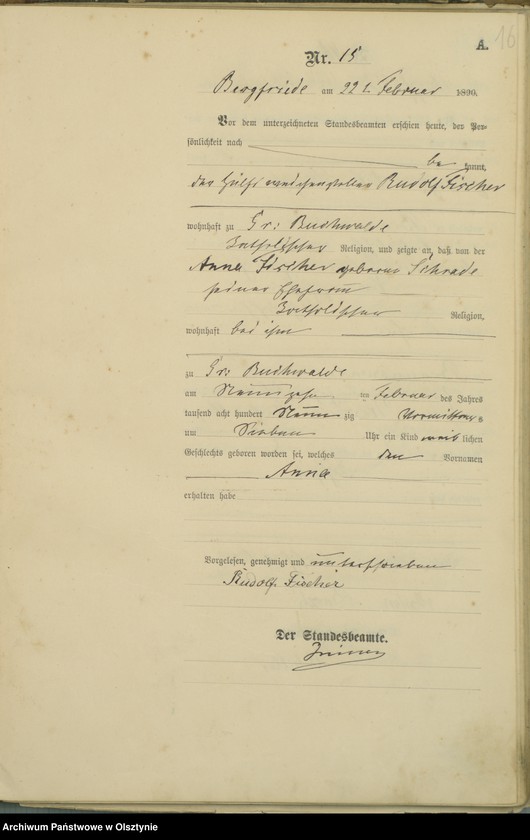 A. 16
Nr. 15
Bergfriede am 22t. Februar 1890.
Vor dem unterzeichneten Standesbeamten erschien heute, der Per-
sönlichkeit nach
be kannt,
der Hülfsweichensteller Rudolf Fischer
wohnhaft zu Gr: Buchwalde
katholischer Religion, und zeigte an, daß von der
Anna Fischer geborne Schrade
seiner Ehefrau
katholischer Religion,
wohnhaft bei ihm
zu Gr: Buchwalde
am Neunzehn ten Februar des Jahres
tausend acht hundert Neun zig Vormittags
um Sieben Uhr ein Kind weib lichen
Geschlechts geboren worden sei, welches den Vornamen
Anna
erhalten habe
Vorgelesen, genehmigt und unterschrieben
Rudolf Fischer
Der Standesbeamte.
Archiwum Państwowe w Olsztynie